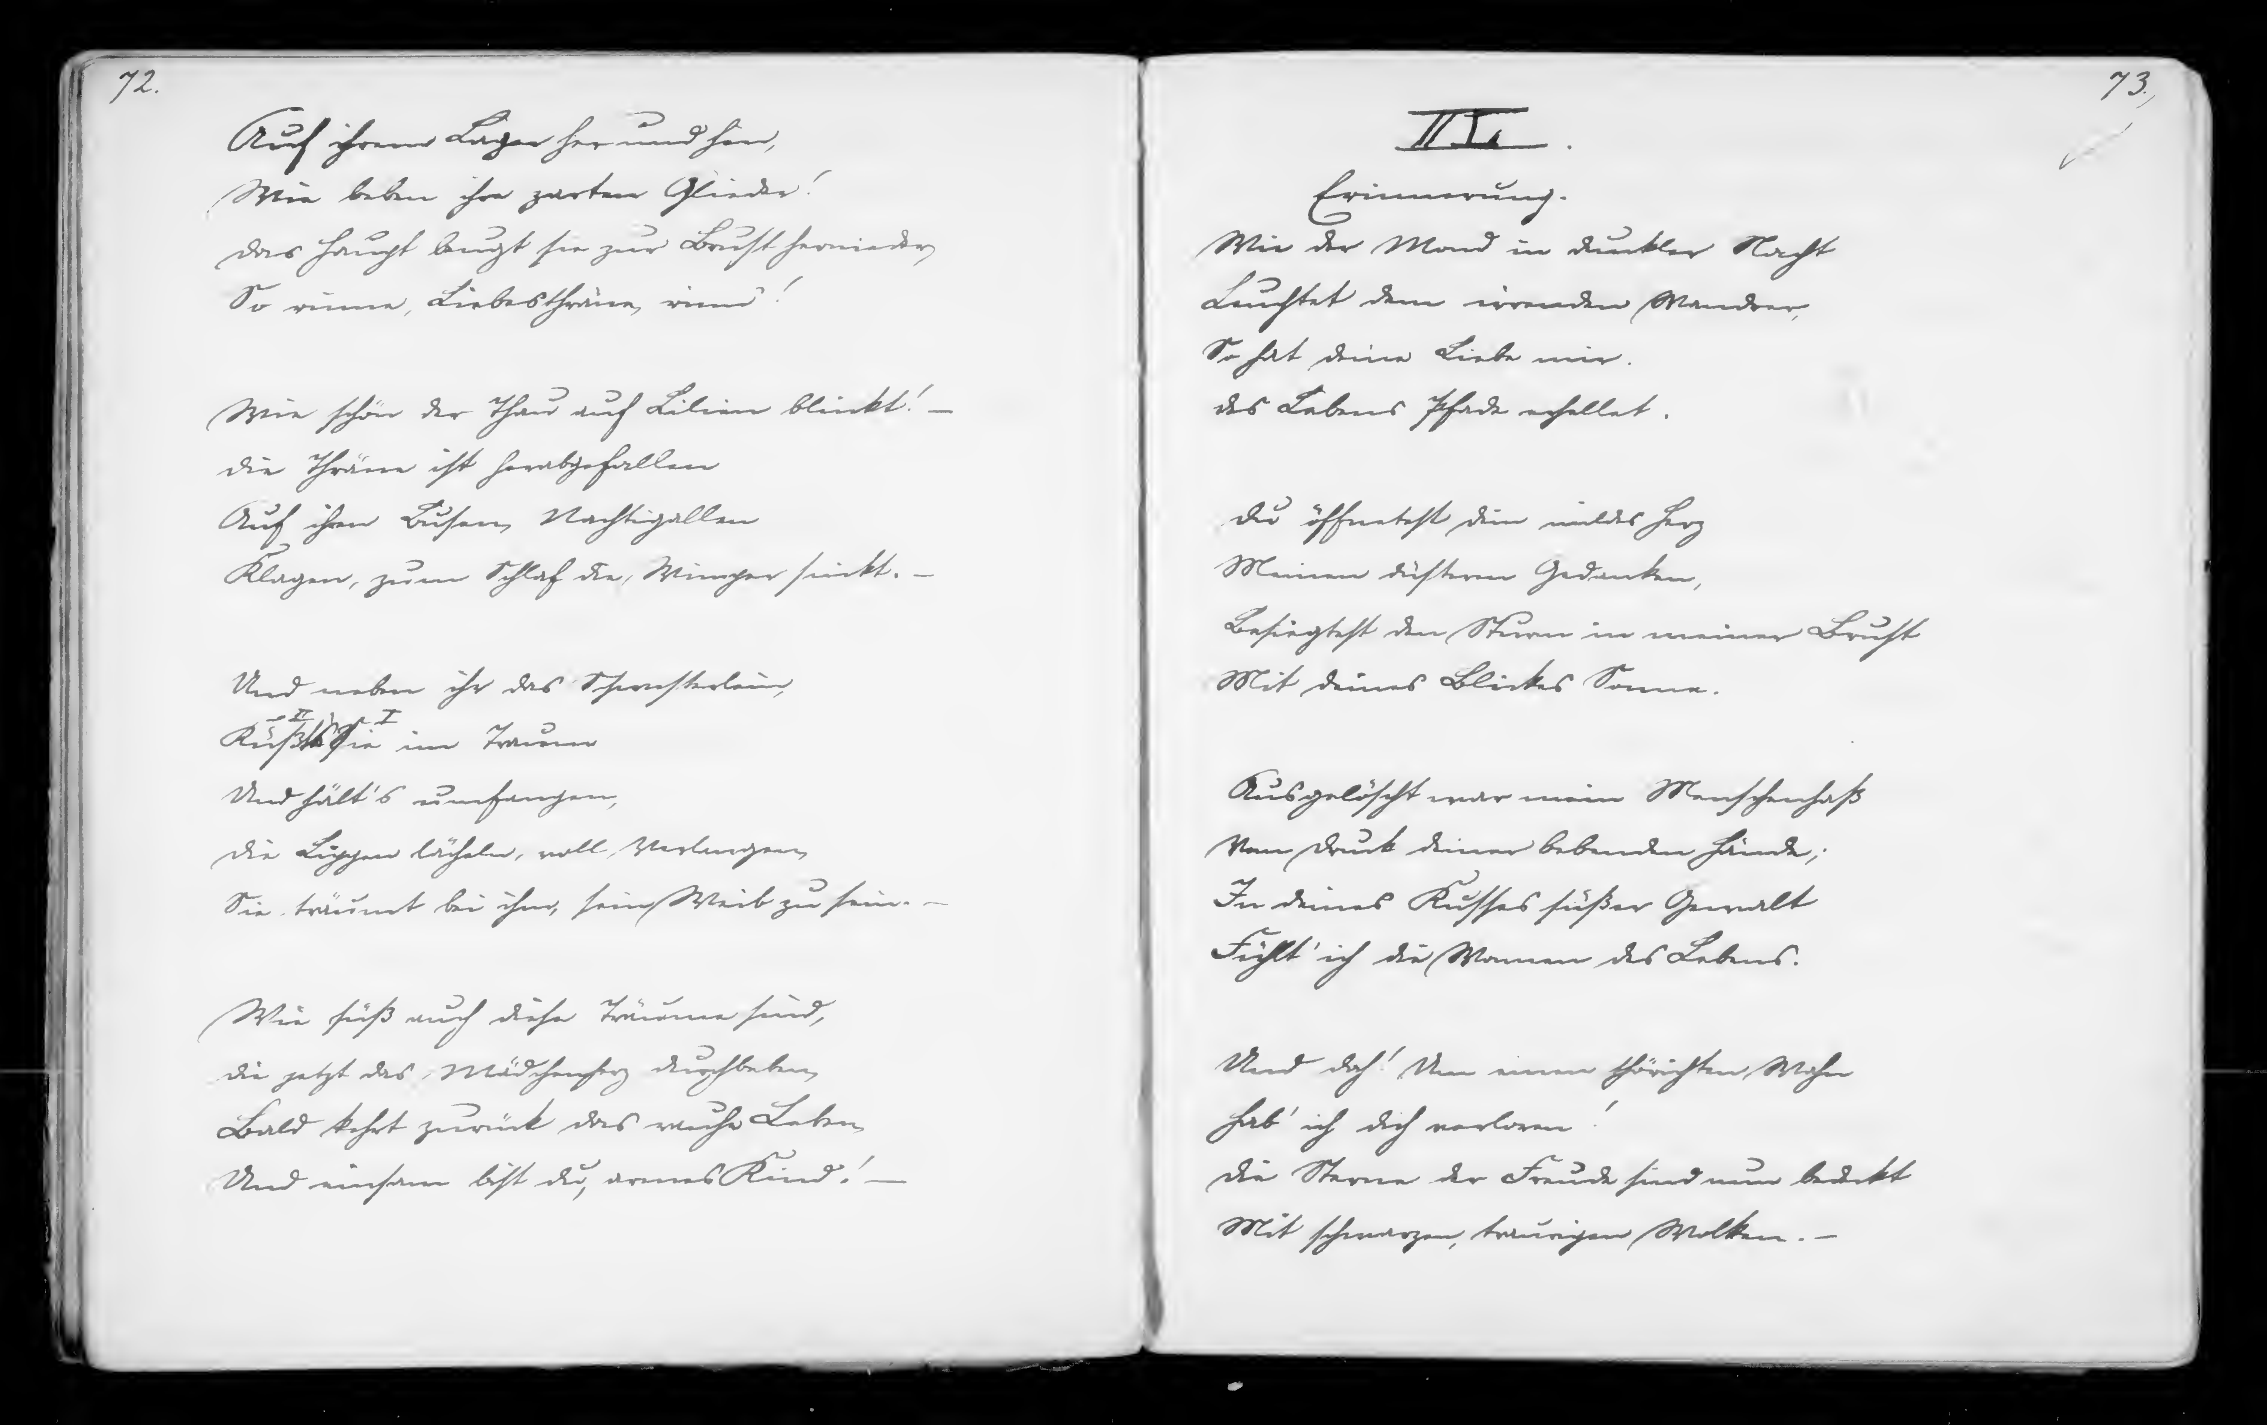 72.
Auf ihrem Lager her und hin,
Wie beben ihre zarten Glieder!
Das Haupt beugt sie zur Brust hernieder,
So rinne, Liebesthräne, rinn'!
Wie schön der Thau auf Lilien blinkt! —
Die Thräne ist herabgefallen
Auf ihren Busen, Nachtigallen
Klagen, zum Schlaf die Wimper sinkt. —
Und neben ihr das Schwesterlein,
II I
Küßt Sie im Traum
Und hält's umfangen,
Die Lippen lächeln, voll Verlangen,
Sie träumt bei ihm, sein Weib zu sein. —
Wie süß auch diese Träume sind,
Die jetzt das Mädchenherz durchbeben,
Bald kehrt zurück das rauhe Leben,
Und einsam bist du, armes Kind! —
73.
III.
Erinnerung.
Wie der Mond in dunkler Nacht
Leuchtet dem irrenden Wandrer,
So hat deine Liebe mir
des Lebens Pfade erhellet.
Du öffnetest dein mildes Herz
Meinen düsteren Gedanken,
Besiegtest den Sturm in meiner Brust
Mit deines Blickes Sonne.
Ausgelöscht war mein Menschenhaß
Vom Druck deiner bebenden Hände;
In deines Kusses süßer Gewalt
Fühlt' ich die Wonnen des Lebens.
Und doch! Um einen thörichten Wahn
Hab' ich dich verloren!
Die Sterne der Freude sind nun bedeckt
Mit schwarzen, traurigen Wolken. —